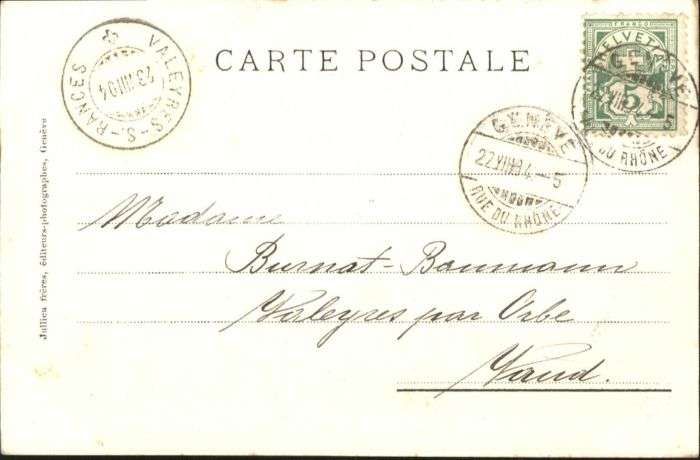 CARTE POSTALE
VALEYRES-S-RANCES
23.VIII.04
FRANCO
HELVETIA
5
GENÈVE
RUE DU RHÔNE
GENÈVE
22.VIII.04.-5
RUE DU RHÔNE
Madame
Burnat-Baumann
Valeyres par Orbe
Vaud.
Jullien frères, éditeurs-photographes, Genève